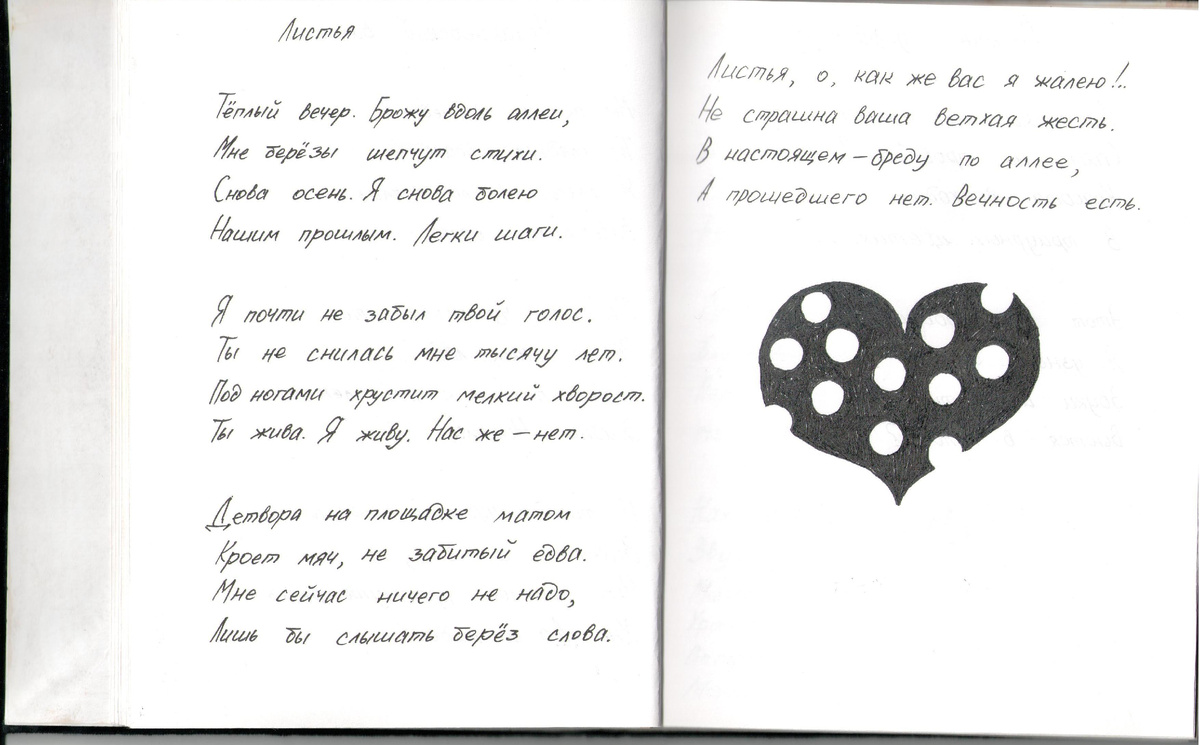 Листья
Тёплый вечер. Брожу вдоль аллеи,
Мне берёзы шепчут стихи.
Снова осень. Я снова болею
Нашим прошлым. Легки шаги.
Я почти не забыл твой голос.
Ты не снилась мне тысячу лет.
Под ногами хрустит мелкий хворост.
Ты жива. Я живу. Нас же – нет.
Детвора на площадке матом
Кроет мяч, не забитый едва.
Мне сейчас ничего не надо,
Лишь бы слышать берёз слова.
Листья, о, как же вас я жалею!..
Не страшна ваша ветхая жесть.
В настоящем – бреду по аллее,
А прошедшего нет. Вечность есть.